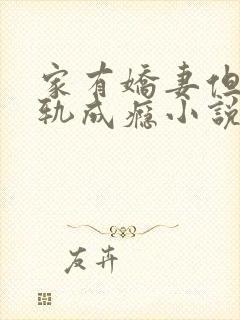 家有嬌妻但
軌成癮小說
友卉